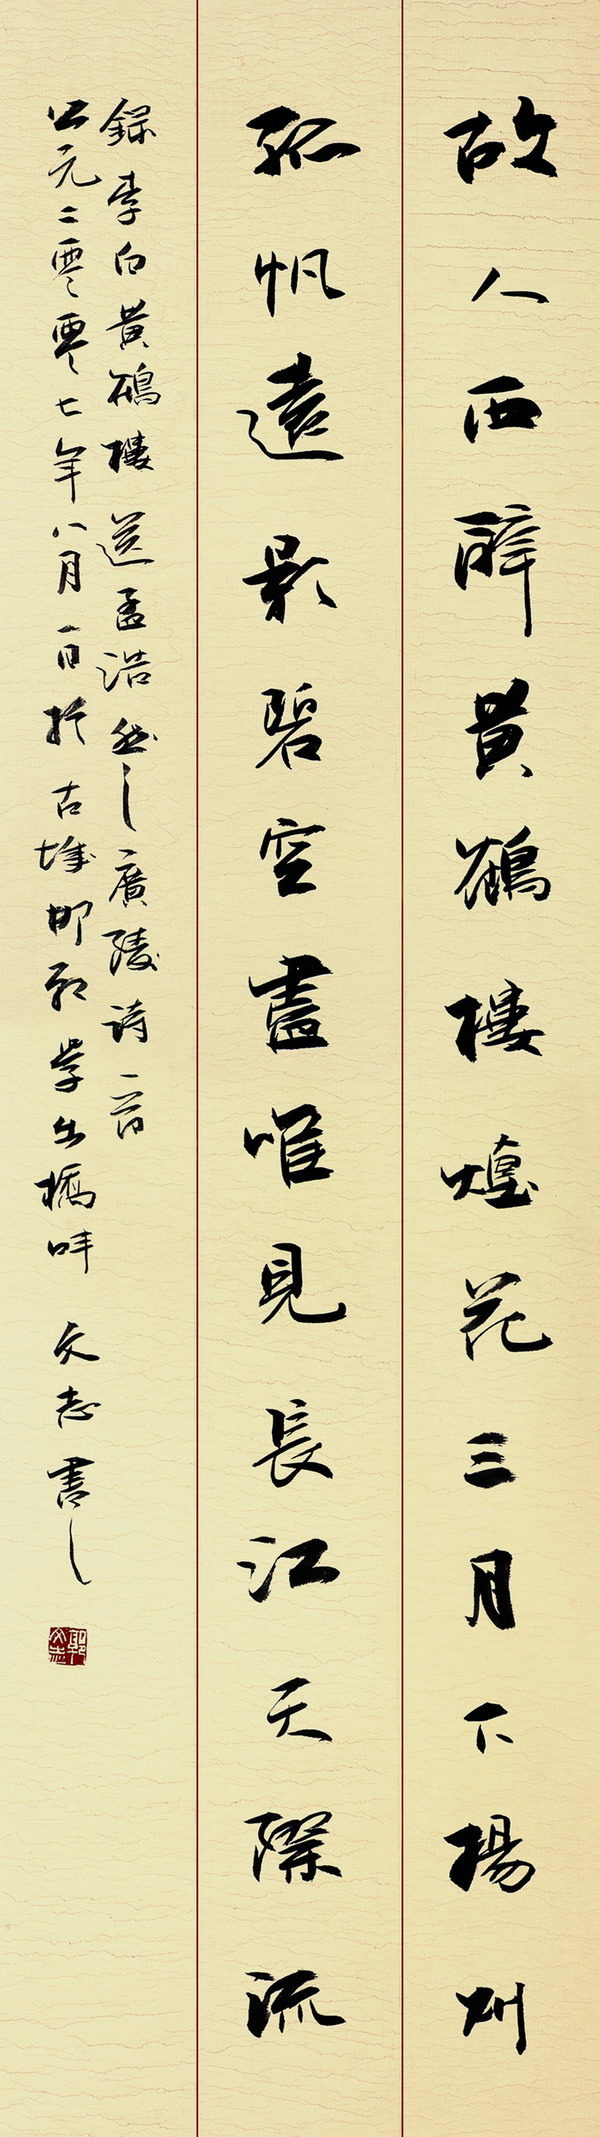 故人西辭黄鶴樓煙花三月下揚州
孤帆遠影碧空盡唯見長江天際流
錄李白黄鶴樓送孟浩然之廣陵诗一首
公元二零零七年八月一日於古城邯郸学生橋畔 文志書